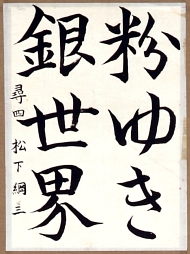 粉ゆき
銀世界
尋四 松下綱三